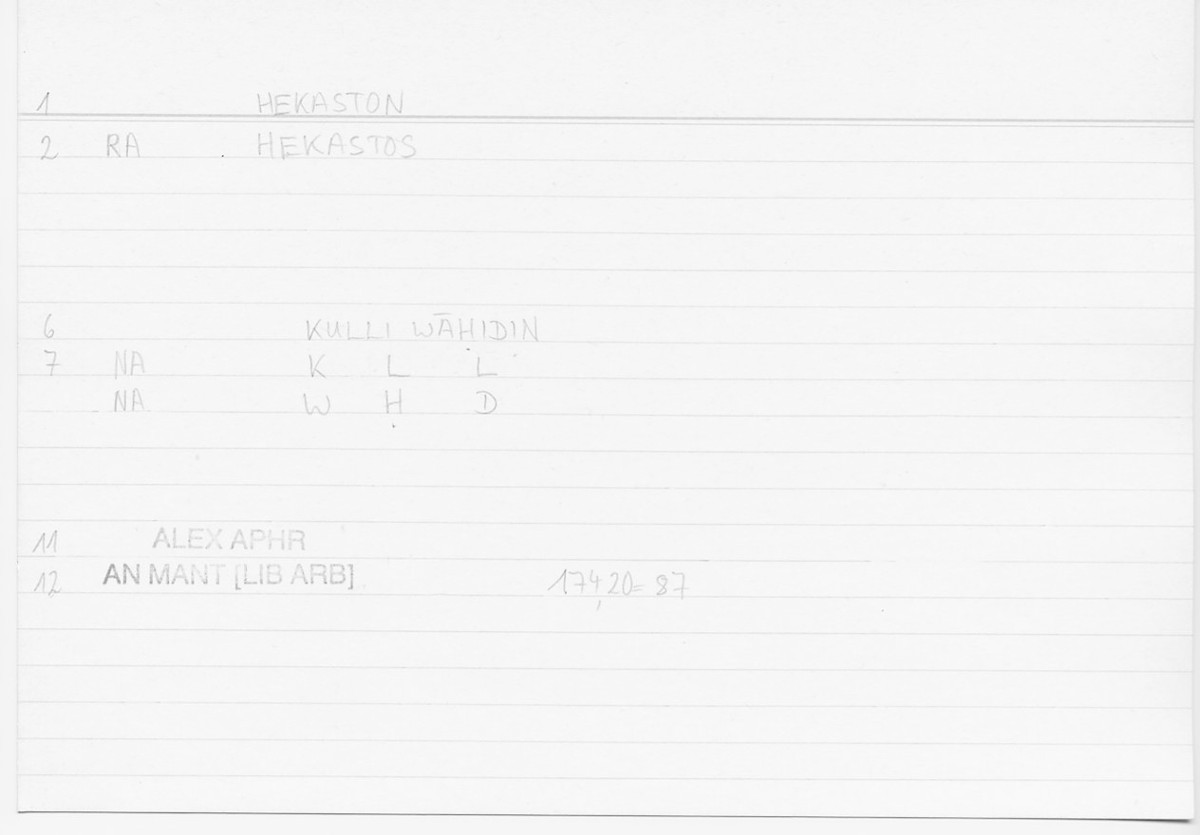 1 HEKASTON
2 RA HEKASTOS
6 KULLI WĀHIDIN
7 NA K L L
NA W Ḥ D
11 ALEX APHR
12 AN MANT [LIB ARB] 174,20= 87